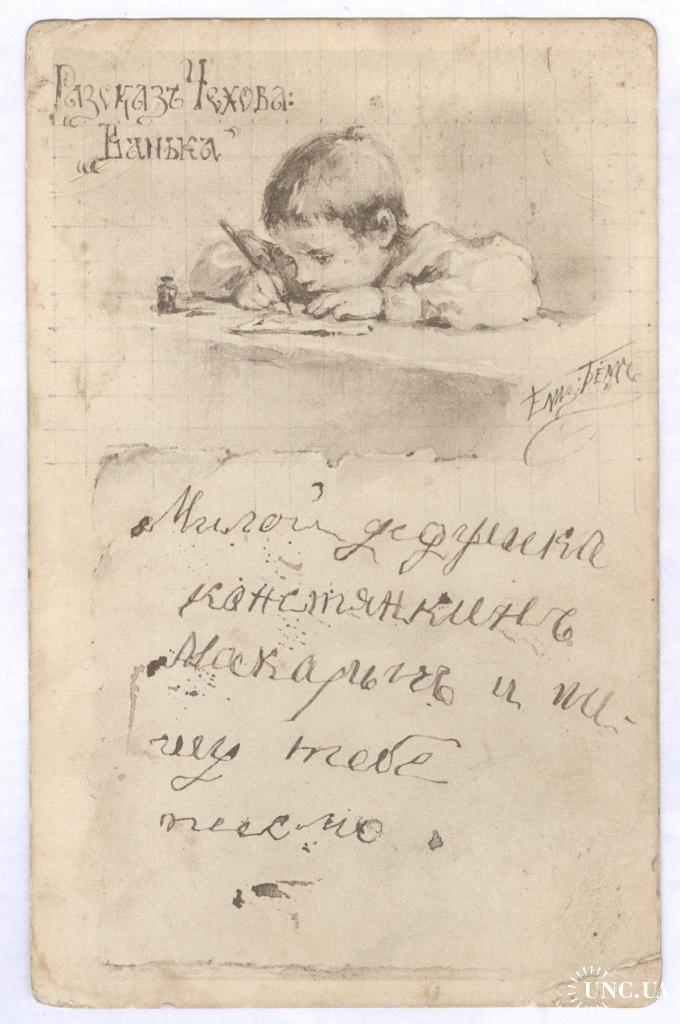 Разсказъ Чехова:
„Ванька"
Елиз: Бёмъ
Милой дедушка
констянкинъ
Макарычъ и пи-
шу тебѣ
письмо.
UNC.UA